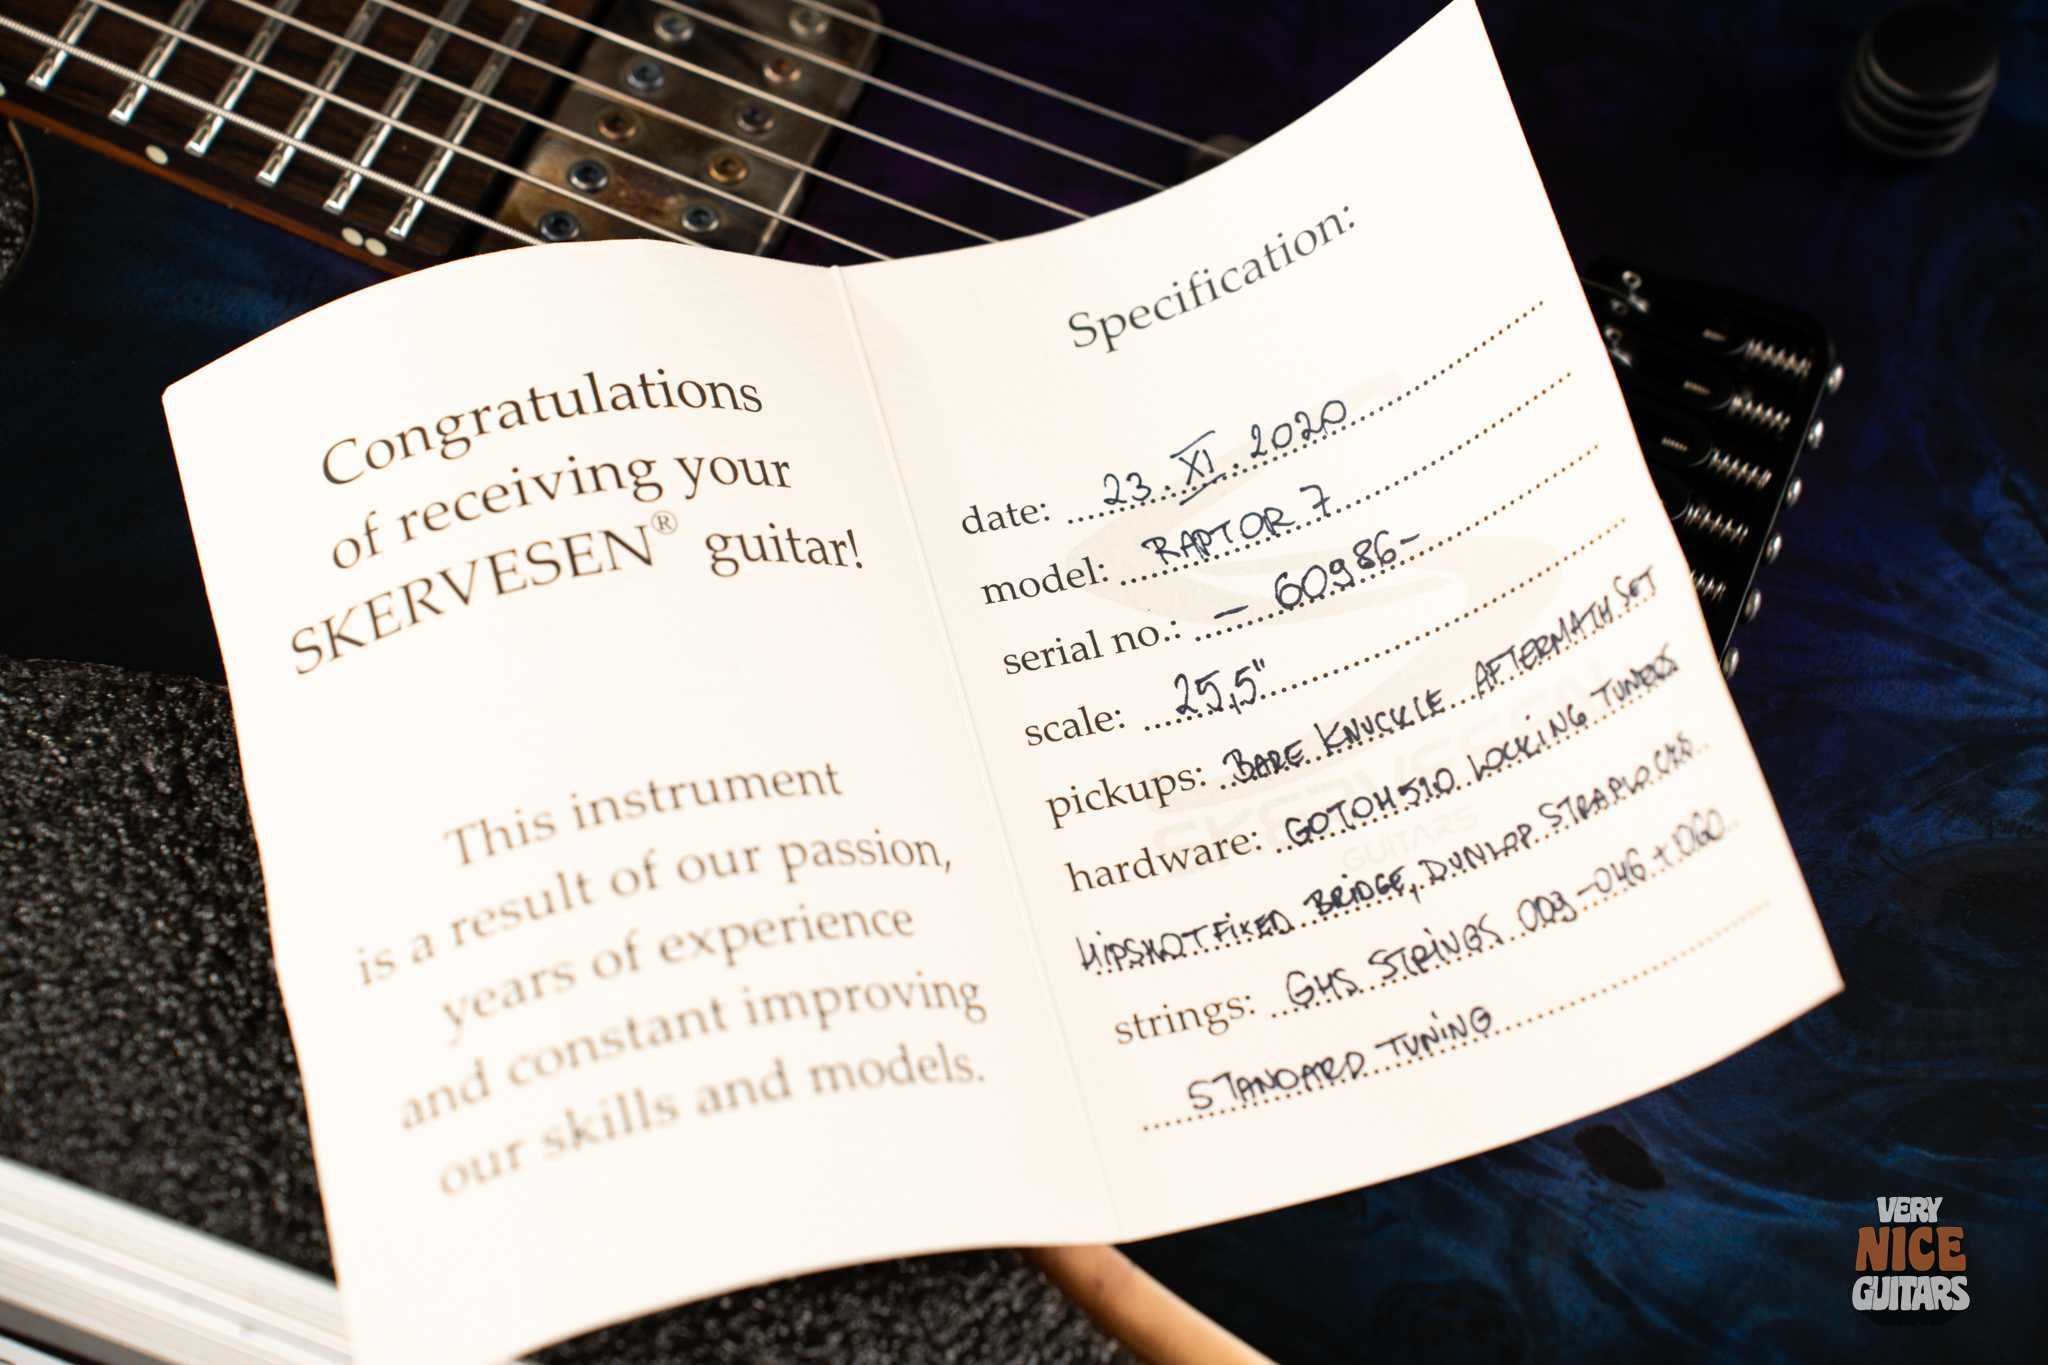 Congratulations
of receiving your
SKERVESEN® guitar!
This instrument
is a result of our passion,
years of experience
and constant improving
our skills and models.
Specification:
date: 23.XI.2020
model: RAPTOR 7
serial no.: – 60986 –
scale: 25,5"
pickups: BARE KNUCKLE AFTERMATH SET
hardware: GOTOH 510 LOCKING TUNERS
HIPSHOT FIXED BRIDGE, DUNLOP STRAPLOCKS
strings: GHS STRINGS 009-046 + 060
STANDARD TUNING
SKERVESEN
GUITARS
VERY
NICE
GUITARS